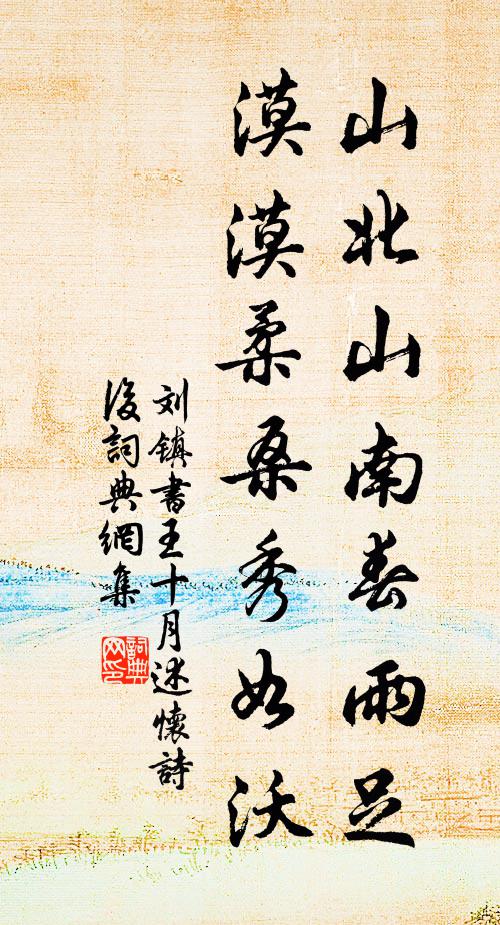 山北山南春雨足
漠漠柔桑秀如沃
刘镇書王十月述懷詩
後詞典網集
詞典
网印